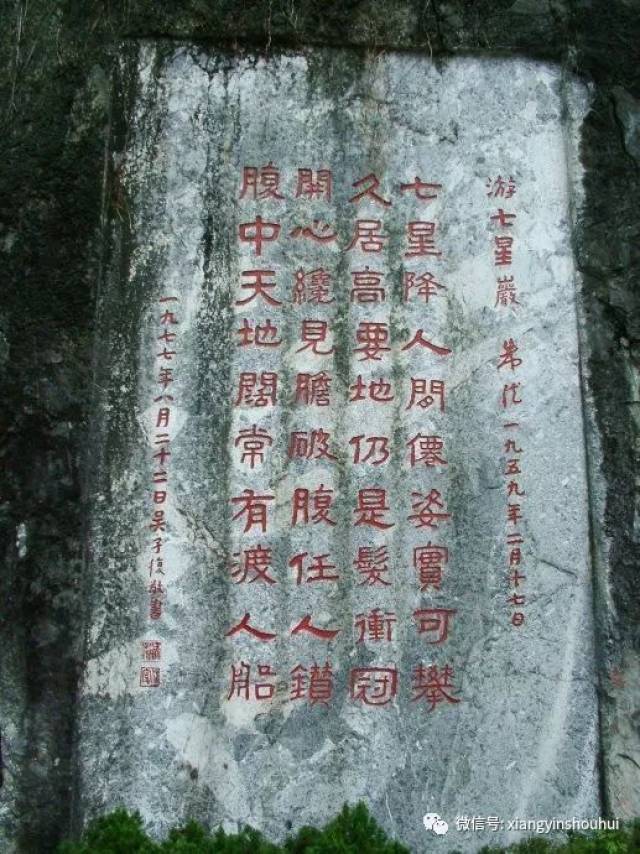 游七星巖 朱德 一九五九年二月十七日
七星降人間僊姿實可攀
久居高要地仍是髮衝冠
開心纔見膽破腹任人鑽
腹中天地闊常有渡人船
一九七七年八月二十二日吴子復敬書
微信号: xiangyinshouhui